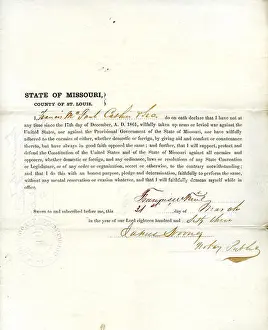 STATE OF MISSOURI,
COUNTY OF ST. LOUIS.
do on oath declare that I have not at
any time since the 17th day of December, A. D. 1861, willfully taken up arms or levied war against the
United States, nor against the Provisional Government of the State of Missouri, nor have willfully
adhered to the enemies of either, whether domestic or foreign, by giving aid and comfort or countenance
thereto, but have always in good faith opposed the same; and further, that I will support, protect and
defend the Constitution of the United States and of the State of Missouri, against all enemies and
opposers, whether domestic or foreign, and any ordinance, laws or resolutions of any State Convention
or Legislature, or of any order or organization, secret or otherwise, to the contrary notwithstanding;
and that I do this with an honest purpose, pledge and determination, faithfully to perform the same,
without any mental reservation or evasion whatever, and that I will faithfully demean myself while
in office.
Sworn to and subscribed before me, this 21 day of March
in the year of our Lord eighteen hundred and Sixty
James
Notary Public